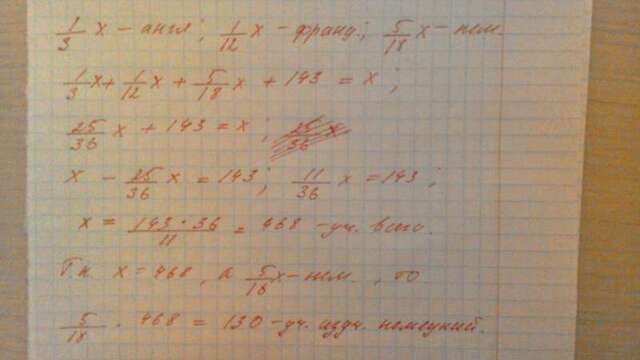 1/3 x - англ; 1/12 x - франц; 5/18 x - нем.
1/3 x + 1/12 x + 5/18 x + 143 = x ;
25/36 x + 143 = x ;
x - 25/36 x = 143; 11/36 x = 143 ;
x = 143 · 36/11 = 468 - уч. всего.
Т.к. x = 468, а 5/18 x - нем. , то
5/18 · 468 = 130 - уч. изуч. немецкий.